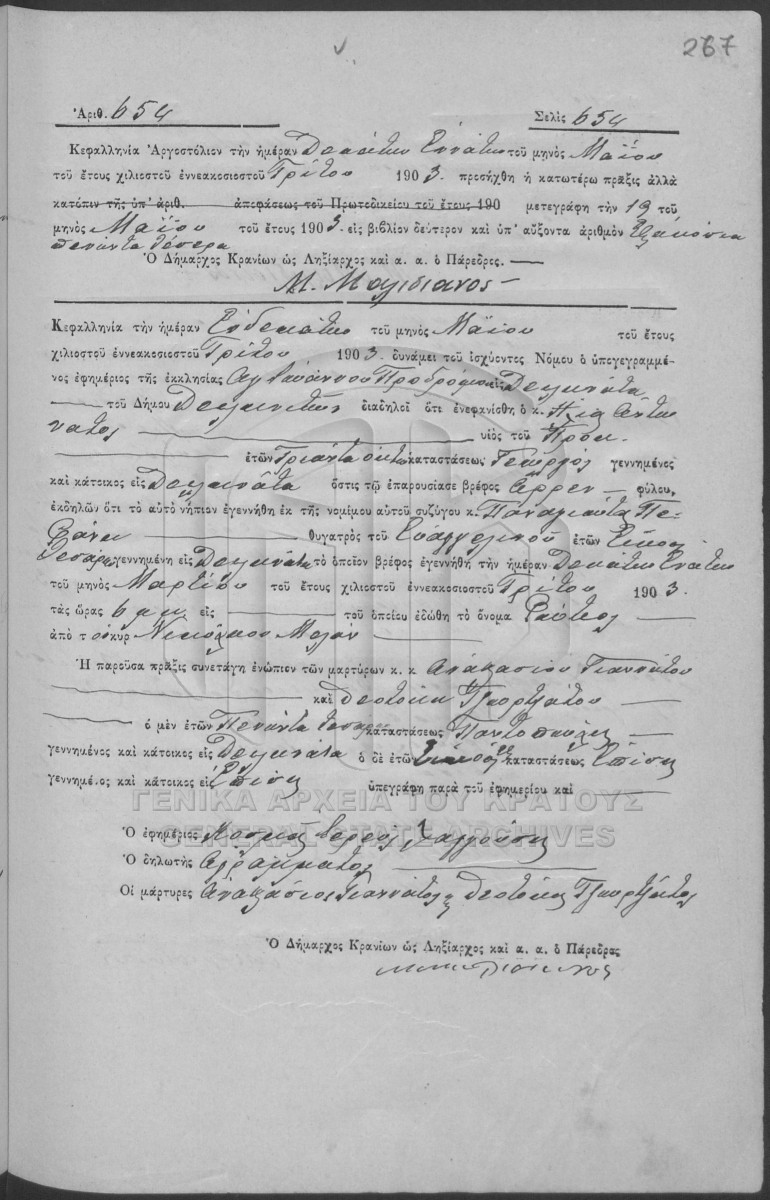 267
Ἀριθ. 654 Σελὶς 654
Κεφαλληνία Ἀργοστόλιον τὴν ἡμέραν Δεκάτην Ἐννάτην τοῦ μηνὸς Μαΐου
τοῦ ἔτους χιλιοστοῦ ἐννεακοσιοστοῦ Τρίτου 1903. προσήχθη ἡ κατωτέρω πρᾶξις ἀλλὰ
κατόπιν τῆς ὑπ' ἀριθ. ἀποφάσεως τοῦ Πρωτοδικείου τοῦ ἔτους 190 μετεγράφη τὴν 19 τοῦ
μηνὸς Μαΐου τοῦ ἔτους 1903 εἰς βιβλίον δεύτερον καὶ ὑπ' αὔξοντα ἀριθμὸν Ἑξακόσια
πενῆντα τέσερα
Ὁ Δήμαρχος Κρανίων ὡς Ληξίαρχος καὶ α. α. ὁ Πάρεδρος.
Κεφαλληνία τὴν ἡμέραν Ἑνδεκάτην τοῦ μηνὸς Μαΐου τοῦ ἔτους
χιλιοστοῦ ἐννεακοσιοστοῦ Τρίτου 1903. δυνάμει τοῦ ἰσχύοντος Νόμου ὁ ὑπογεγραμμέ-
νος ἐφημέριος τῆς ἐκκλησίας Αγ Ιωάννου Προδρόμου εἰς Δειλινάτα
τοῦ Δήμου διαδηλοῖ ὅτι ἐνεφανίσθη ὁ κ. Ηλίας Αντω
νατος υἱὸς τοῦ
ἐτῶν Τριάντα οκτώ καταστάσεως Γεωργός γεννημένος
καὶ κάτοικος εἰς Δειλινάτα ὅστις τῷ ἐπαρουσίασε βρέφος ἄρρεν φύλου,
ἐκδηλῶν ὅτι τὸ αὐτὸ νήπιον ἐγεννήθη ἐκ τῆς νομίμου αὐτοῦ συζύγου κ.
θυγατρὸς τοῦ Ευαγγελινού ἐτῶν Είκοσι
Τεσάρων γεννημένη εἰς Δειλινάτα τὸ ὁποῖον βρέφος ἐγεννήθη τὴν ἡμέραν Δεκάτην Ενάτην
τοῦ μηνὸς Μαρτίου τοῦ ἔτους χιλιοστοῦ ἐννεακοσιοστοῦ Τρίτου 1903.
τὰς ὥρας 6 εἰς τοῦ ὁποίου ἐδώθη τὸ ὄνομα
ἀπὸ τ Νικόλαον
Ἡ παροῦσα πρᾶξις συνετάγη ἐνώπιον τῶν μαρτύρων κ. κ. Αθανασίου Γιαννάτου
καὶ Θεοτόκη Τζωρτζάτου
ὁ μὲν ἐτῶν Πενήντα καταστάσεως Παντοπώλης
γεννημένος καὶ κάτοικος εἰς Δειλινάτα ὁ δὲ ἐτῶν καταστάσεως Επίσης
γεννημένος καὶ κάτοικος εἰς Επίσης ὑπεγράφη παρὰ τοῦ ἐφημερίου καὶ
ΓΕΝΙΚΑ ΑΡΧΕΙΑ ΤΟΥ ΚΡΑΤΟΥΣ
GENERAL STATE ARCHIVES
Ὁ ἐφημέριος Κοσμάς
Ὁ δηλωτὴς Αγράμματος
Οἱ μάρτυρες Αθανάσιος Γιαννάτος Θεοτόκης Τζωρτζάτος
Ὁ Δήμαρχος Κρανίων ὡς Ληξίαρχος καὶ α. α. ὁ Πάρεδρος